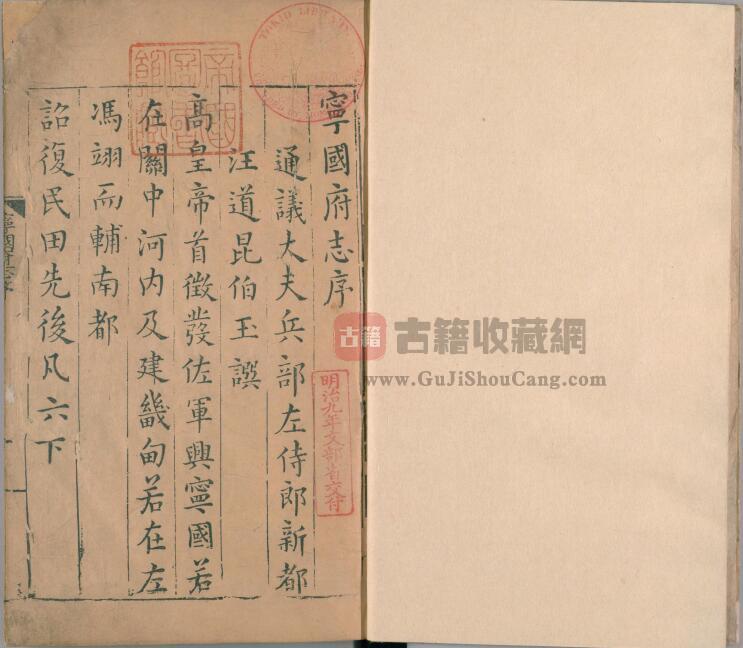 寧國府志序
通議大夫兵部左侍郎新都
汪道昆伯玉譔
高皇帝首徵發佐軍興寧國若
在關中河內及建畿甸若在左
馮翊而輔南都
詔復民田先後凡六下
TOKIO LIBRARY
明治九年文部省交付
古籍
古籍收藏網
www.GuJiShouCang.com